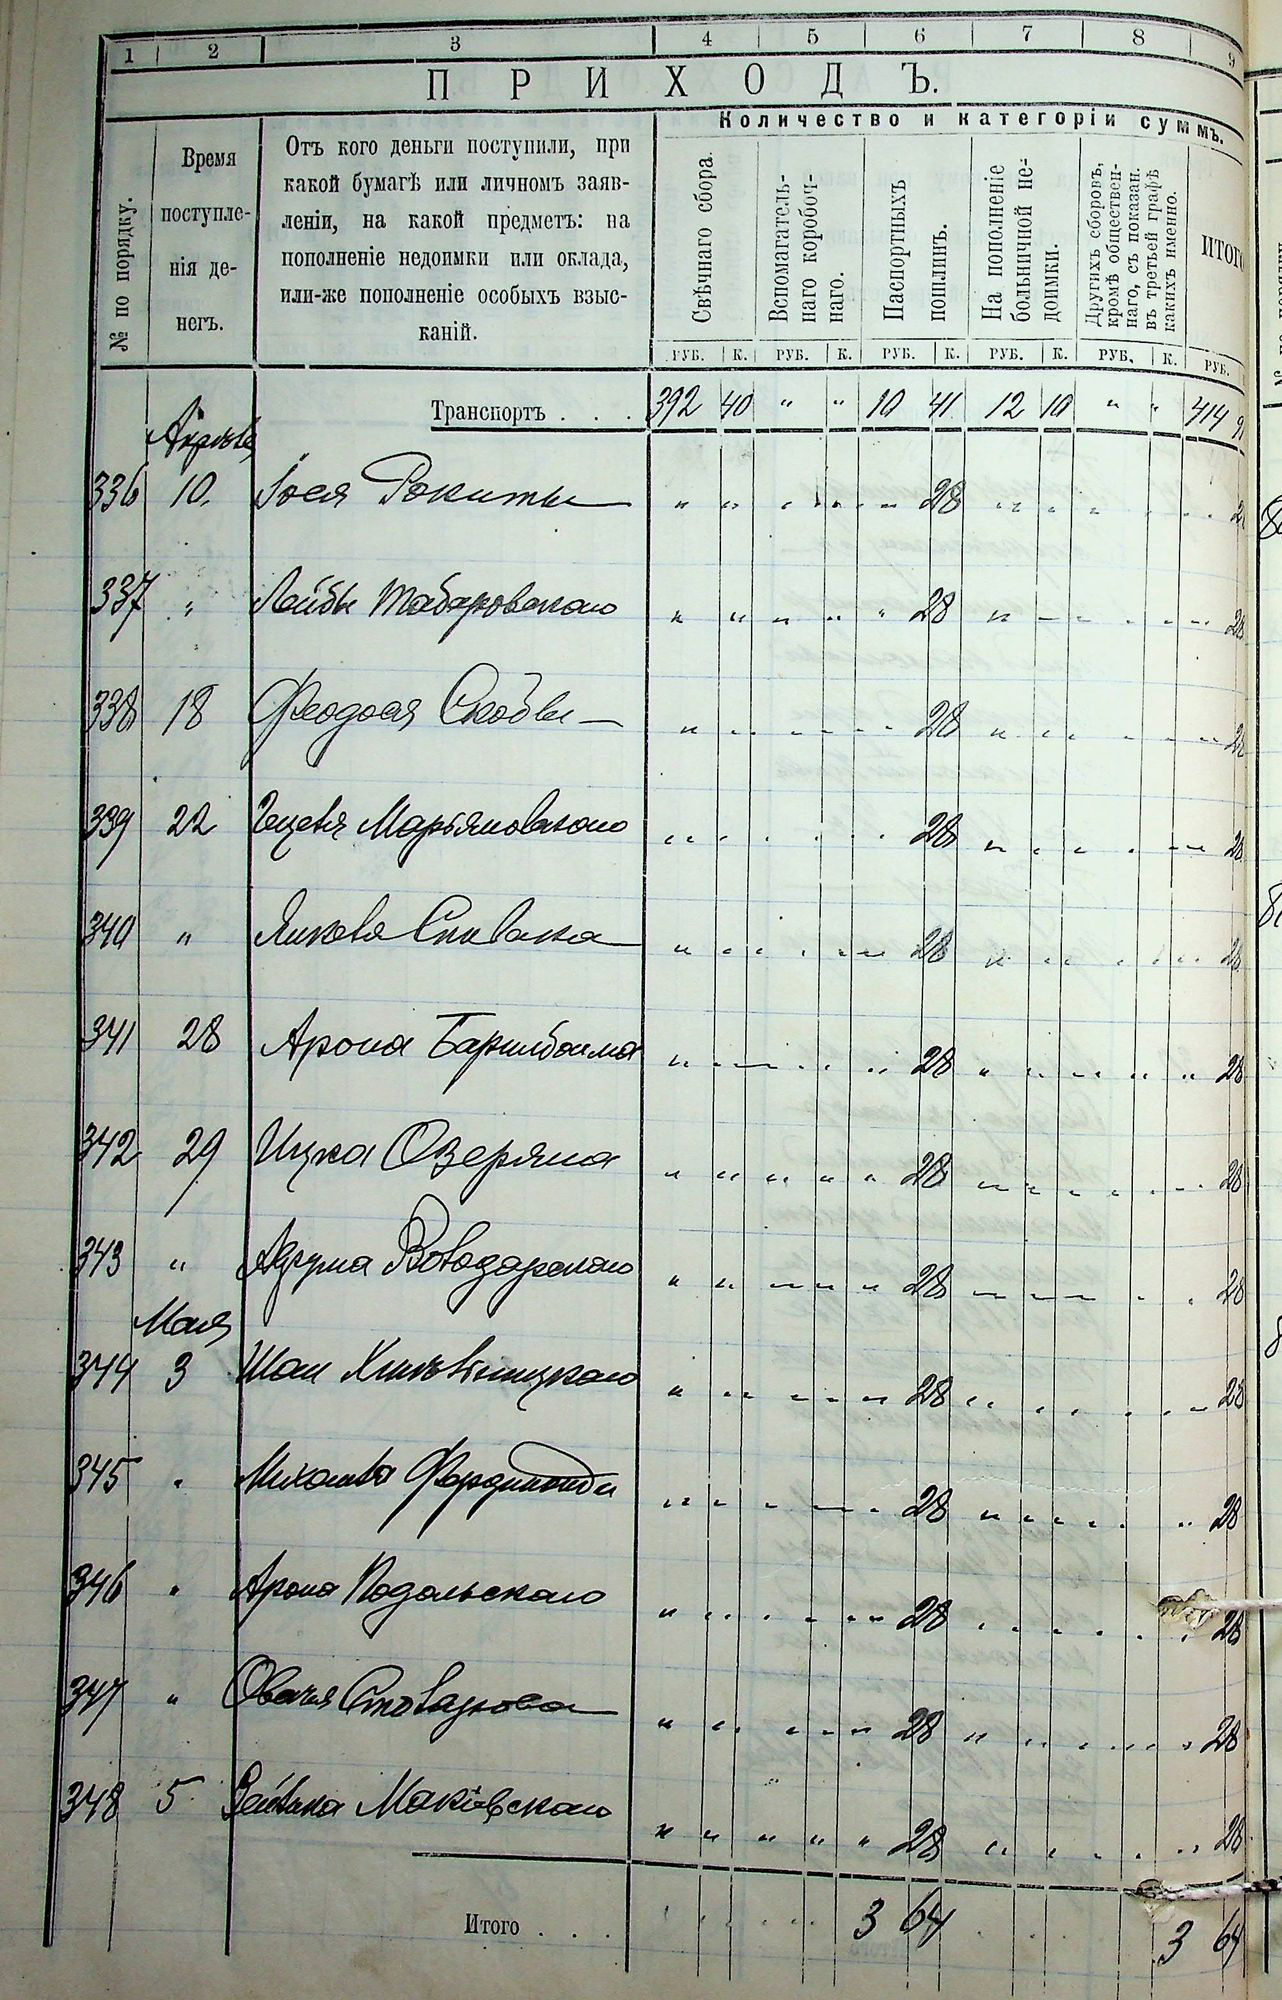 1 2 3 4 5 6 7 8 9
ПРИХОДЪ.
№ по порядку.
Время
поступле-
нія де-
негъ.
Отъ кого деньги поступили, при
какой бумагѣ или личномъ заяв-
леніи, на какой предметъ: на
пополненіе недоимки или оклада,
или-же пополненіе особыхъ взыс-
каній.
Количество и категоріи суммъ.
Свѣчнаго сбора.
Вспомагатель-
наго коробоч-
наго.
Паспортныхъ
пошлинъ.
На пополненіе
больничной не-
доимки.
Другихъ сборовъ,
кромѣ обществен-
наго, съ показан.
въ третьей графѣ
какихъ именно.
ИТОГО
РУБ. К. РУБ. К. РУБ. К. РУБ. К. РУБ. К. РУБ.
Транспортъ . . . 392 40 " " 10 41 12 10 " " 414 91
Апрѣля
336 10. Іося Рокиты 28
337 " Лейбы Табаровскаго 28 28
338 18 Феодосія 28 28
339 22 Марьяновскаго 28 28
340 " Янкеля Спивака 28 28
341 28 Арона Барилбойма 28 28
342 29 Ицка Озеряна 28 28
343 " Володарскаго 28 28
Мая
344 3 28 28
345 " Михаила 28 28
346 " Арона Подольскаго 28 28
347 " 28 28
348 5 28 28
Итого . . . 3 64 3 64